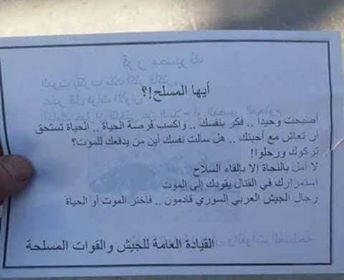 أيها المسلح!؟
أصبحت وحيداً.. فكر بنفسك.. واكسب فرصة الحياة.. الحياة تستحق
أن تعاش مع أحبتك.. هل سألت نفسك أين من يدفعك للموت؟
تركوك ورحلوا!
لا أمل بالنجاة إلا بإلقاء السلاح
استمرارك في القتال يقودك إلى الموت
رجال الجيش العربي السوري قادمون.. فاختر الموت أو الحياة
القيادة العامة للجيش والقوات المسلحة